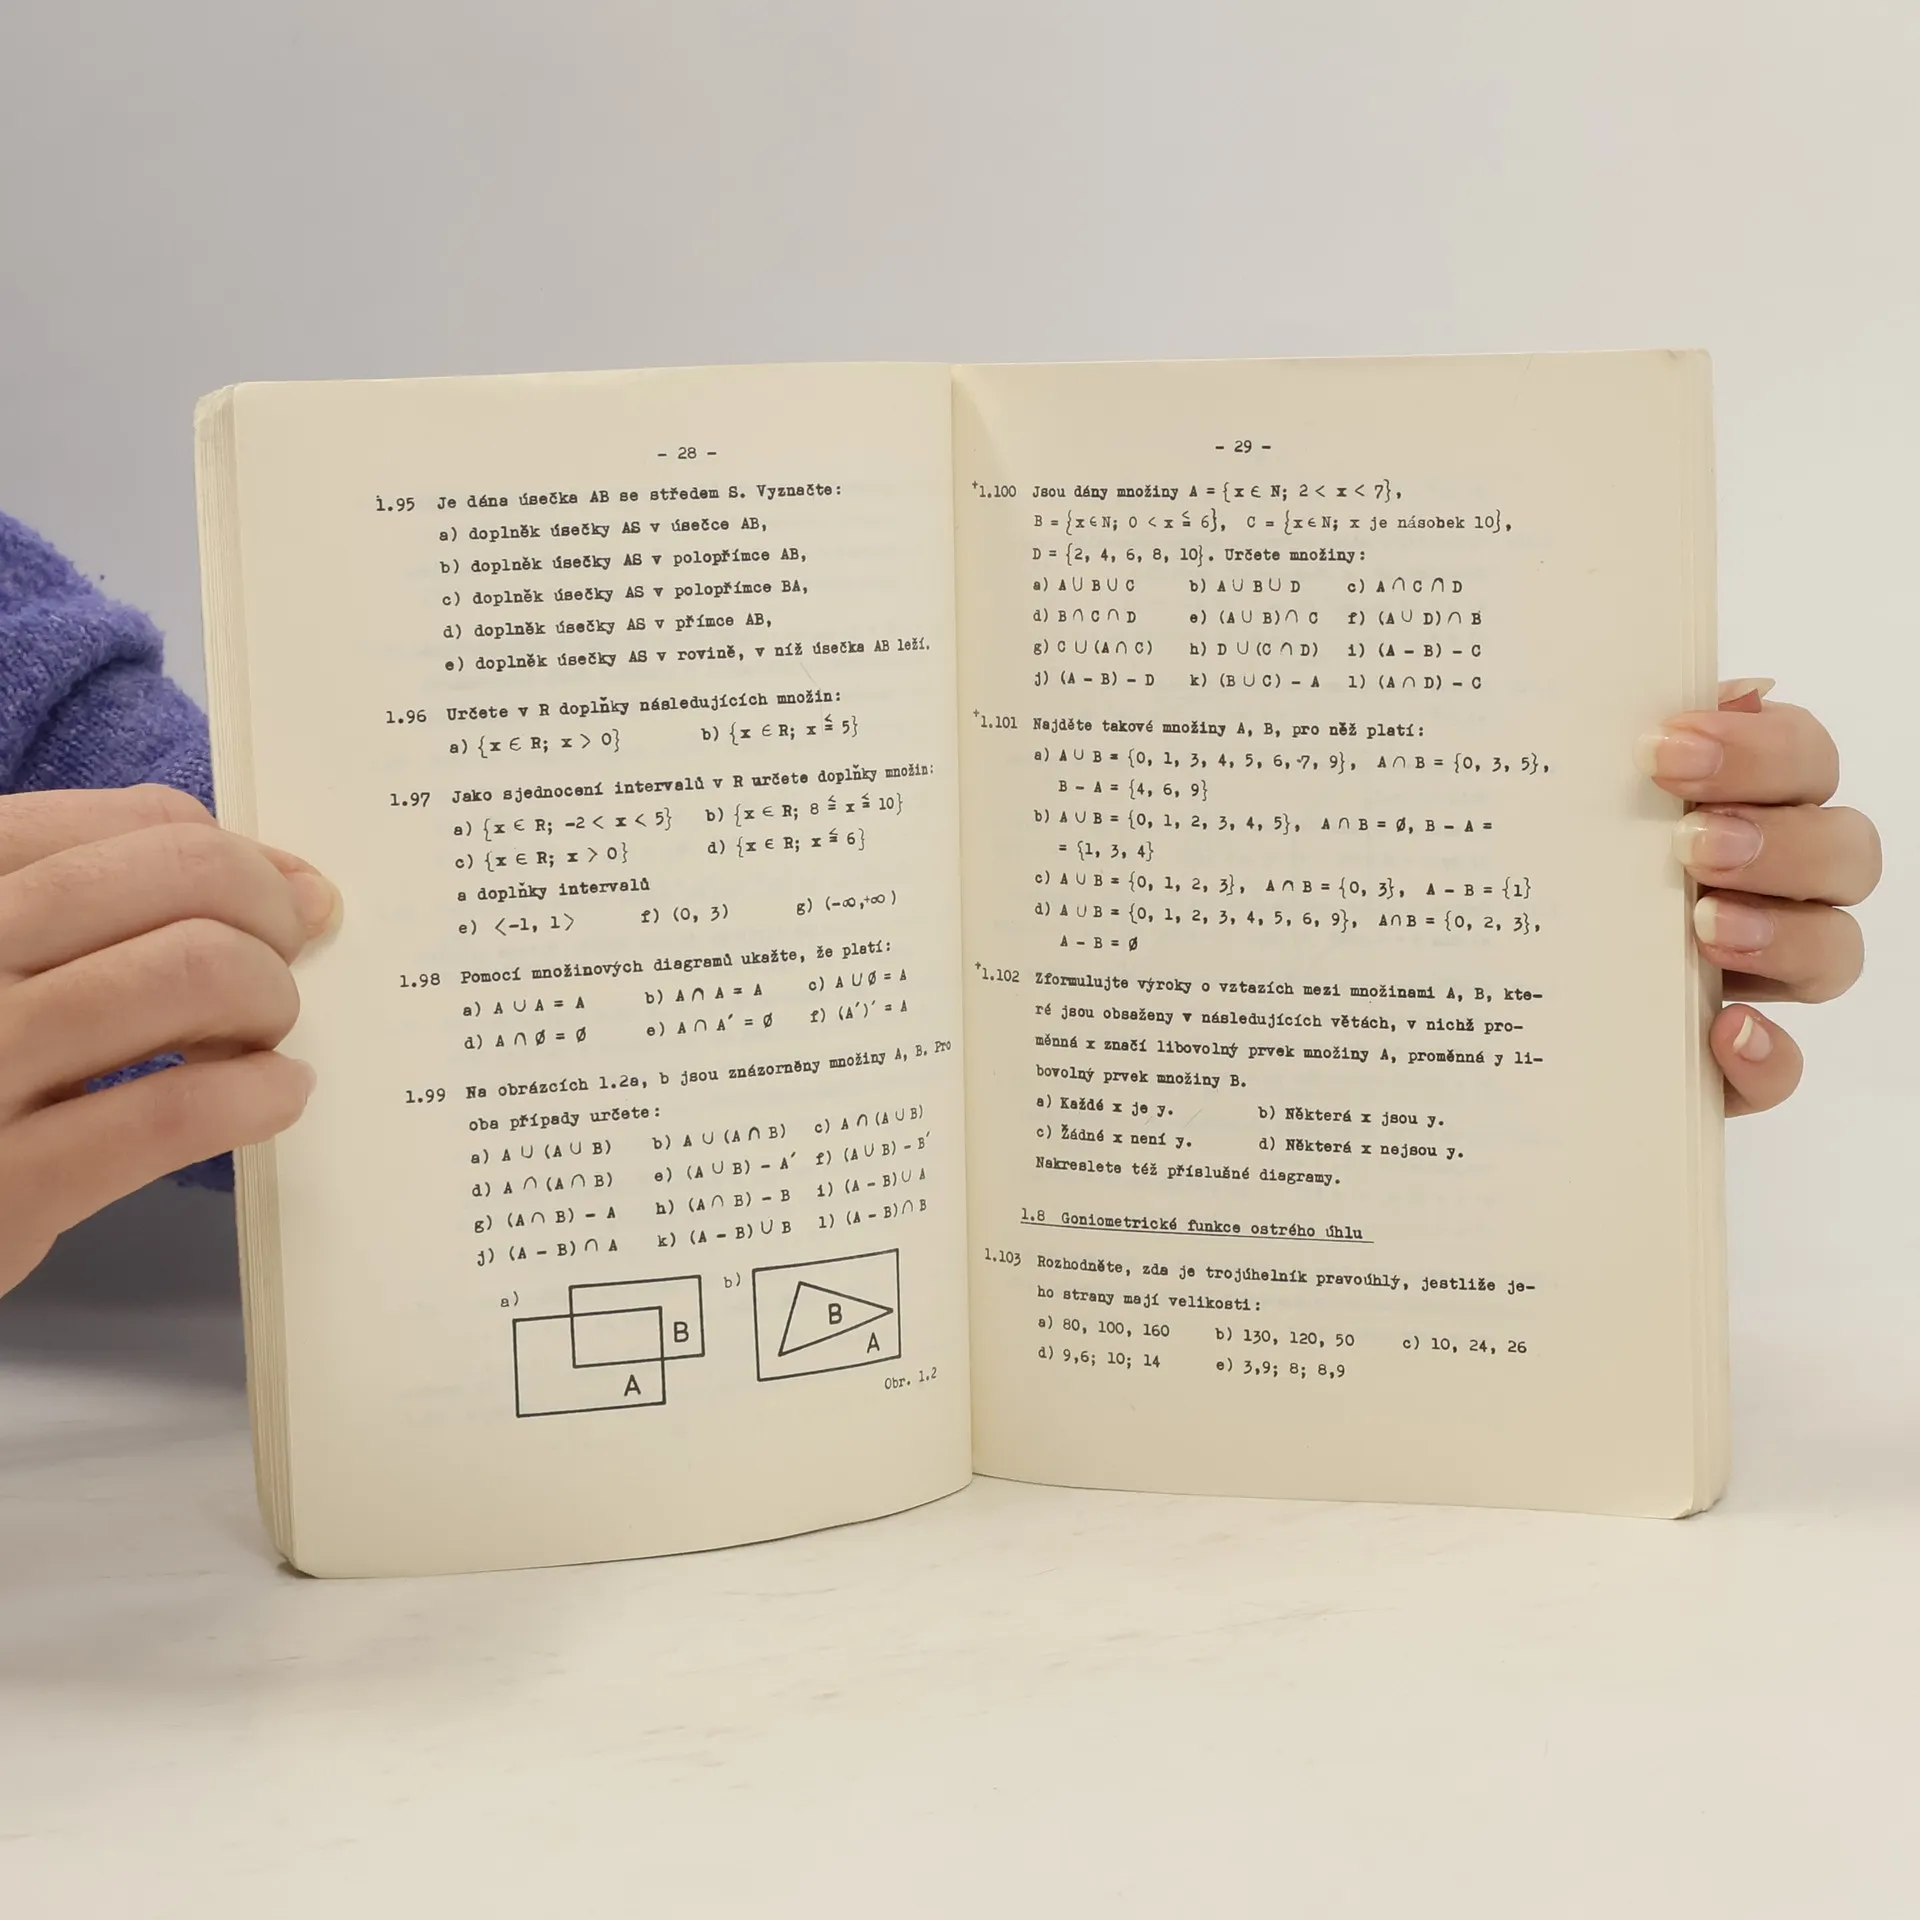 - 28 -
1.95 Je dána úsečka AB se středem S. Vyznačte:
a) doplněk úsečky AS v úsečce AB,
b) doplněk úsečky AS v polopřímce AB,
c) doplněk úsečky AS v polopřímce BA,
d) doplněk úsečky AS v přímce AB,
e) doplněk úsečky AS v rovině, v níž úsečka AB leží.
1.96 Určete v R doplňky následujících množin:
a) {x ∈ R; x > 0} b) {x ∈ R; x ≦ 5}
1.97 Jako sjednocení intervalů v R určete doplňky množin:
a) {x ∈ R; -2 < x < 5} b) {x ∈ R; 8 ≦ x ≦ 10}
c) {x ∈ R; x > 0} d) {x ∈ R; x ≦ 6}
a doplňky intervalů
e) <-1, 1> f) (0, 3) g) (-∞,+∞)
1.98 Pomocí množinových diagramů ukažte, že platí:
a) A ∪ A = A b) A ∩ A = A c) A ∪ ∅ = A
d) A ∩ ∅ = ∅ e) A ∩ A′ = ∅ f) (A′)′ = A
1.99 Na obrázcích 1.2a, b jsou znázorněny množiny A, B. Pro
oba případy určete:
a) A ∪ (A ∪ B) b) A ∪ (A ∩ B) c) A ∩ (A ∪ B)
d) A ∩ (A ∩ B) e) (A ∪ B) - A′ f) (A ∪ B) - B′
g) (A ∩ B) - A h) (A ∩ B) - B i) (A - B) ∪ A
j) (A - B) ∩ A k) (A - B) ∪ B l) (A - B) ∩ B
a) b)
B
A
B
A
Obr. 1.2
- 29 -
+1.100 Jsou dány množiny A = {x ∈ N; 2 < x < 7},
B = {x ∈ N; 0 < x ≦ 6}, C = {x ∈ N; x je násobek 10},
D = {2, 4, 6, 8, 10}. Určete množiny:
a) A ∪ B ∪ C b) A ∪ B ∪ D c) A ∩ C ∩ D
d) B ∩ C ∩ D e) (A ∪ B) ∩ C f) (A ∪ D) ∩ B
g) C ∪ (A ∩ C) h) D ∪ (C ∩ D) i) (A - B) - C
j) (A - B) - D k) (B ∪ C) - A l) (A ∩ D) - C
+1.101 Najděte takové množiny A, B, pro něž platí:
a) A ∪ B = {0, 1, 3, 4, 5, 6, 7, 9}, A ∩ B = {0, 3, 5},
B - A = {4, 6, 9}
b) A ∪ B = {0, 1, 2, 3, 4, 5}, A ∩ B = ∅, B - A =
= {1, 3, 4}
c) A ∪ B = {0, 1, 2, 3}, A ∩ B = {0, 3}, A - B = {1}
d) A ∪ B = {0, 1, 2, 3, 4, 5, 6, 9}, A ∩ B = {0, 2, 3},
A - B = ∅
+1.102 Zformulujte výroky o vztazích mezi množinami A, B, kte-
ré jsou obsaženy v následujících větách, v nichž pro-
měnná x značí libovolný prvek množiny A, proměnná y li-
bovolný prvek množiny B.
a) Každé x je y. b) Některá x jsou y.
c) Žádné x není y. d) Některá x nejsou y.
Nakreslete též příslušné diagramy.
1.8 Goniometrické funkce ostrého úhlu
1.103 Rozhodněte, zda je trojúhelník pravoúhlý, jestliže je-
ho strany mají velikosti:
a) 80, 100, 160 b) 130, 120, 50 c) 10, 24, 26
d) 9,6; 10; 14 e) 3,9; 8; 8,9